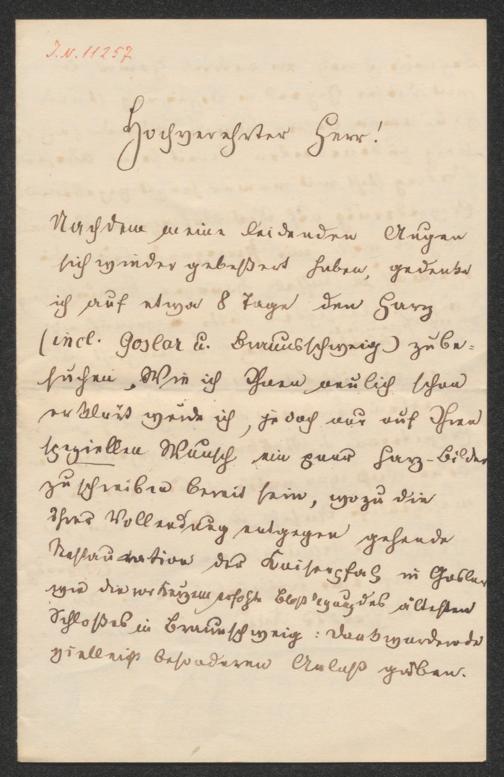 I.N. 11257
Hochverehrter Herr!
Nachdem meine leidenden Augen
sich wieder gebeßert haben, gedenke
ich auf etwa 8 Tage den Harz
(incl. Goslar u. Braunschweig) zu be-
suchen. Wie ich Ihnen neulich schon
erklärt würde ich, jedoch nur auf Ihren
speziellen Wunsch ein paar Harz-Bilder
zu schreiben bereit sein, wozu die
ihrer Vollendung entgegen gehende
Restauration der Kaiserpfalz in Goslar
wie die vor Kurzem erfolgte Bloßlegung des ältesten
Schloßes in Braunschweig: Dankwarderode
vielleicht besonderen Anlaß gäben.